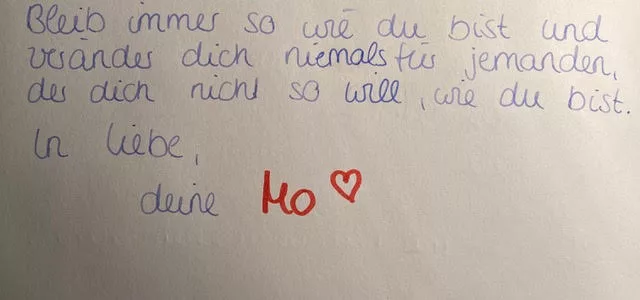 Bleib immer so wie du bist und
veränder dich niemals für jemanden,
der dich nicht so will, wie du bist.
In Liebe,
deine Mo ♡